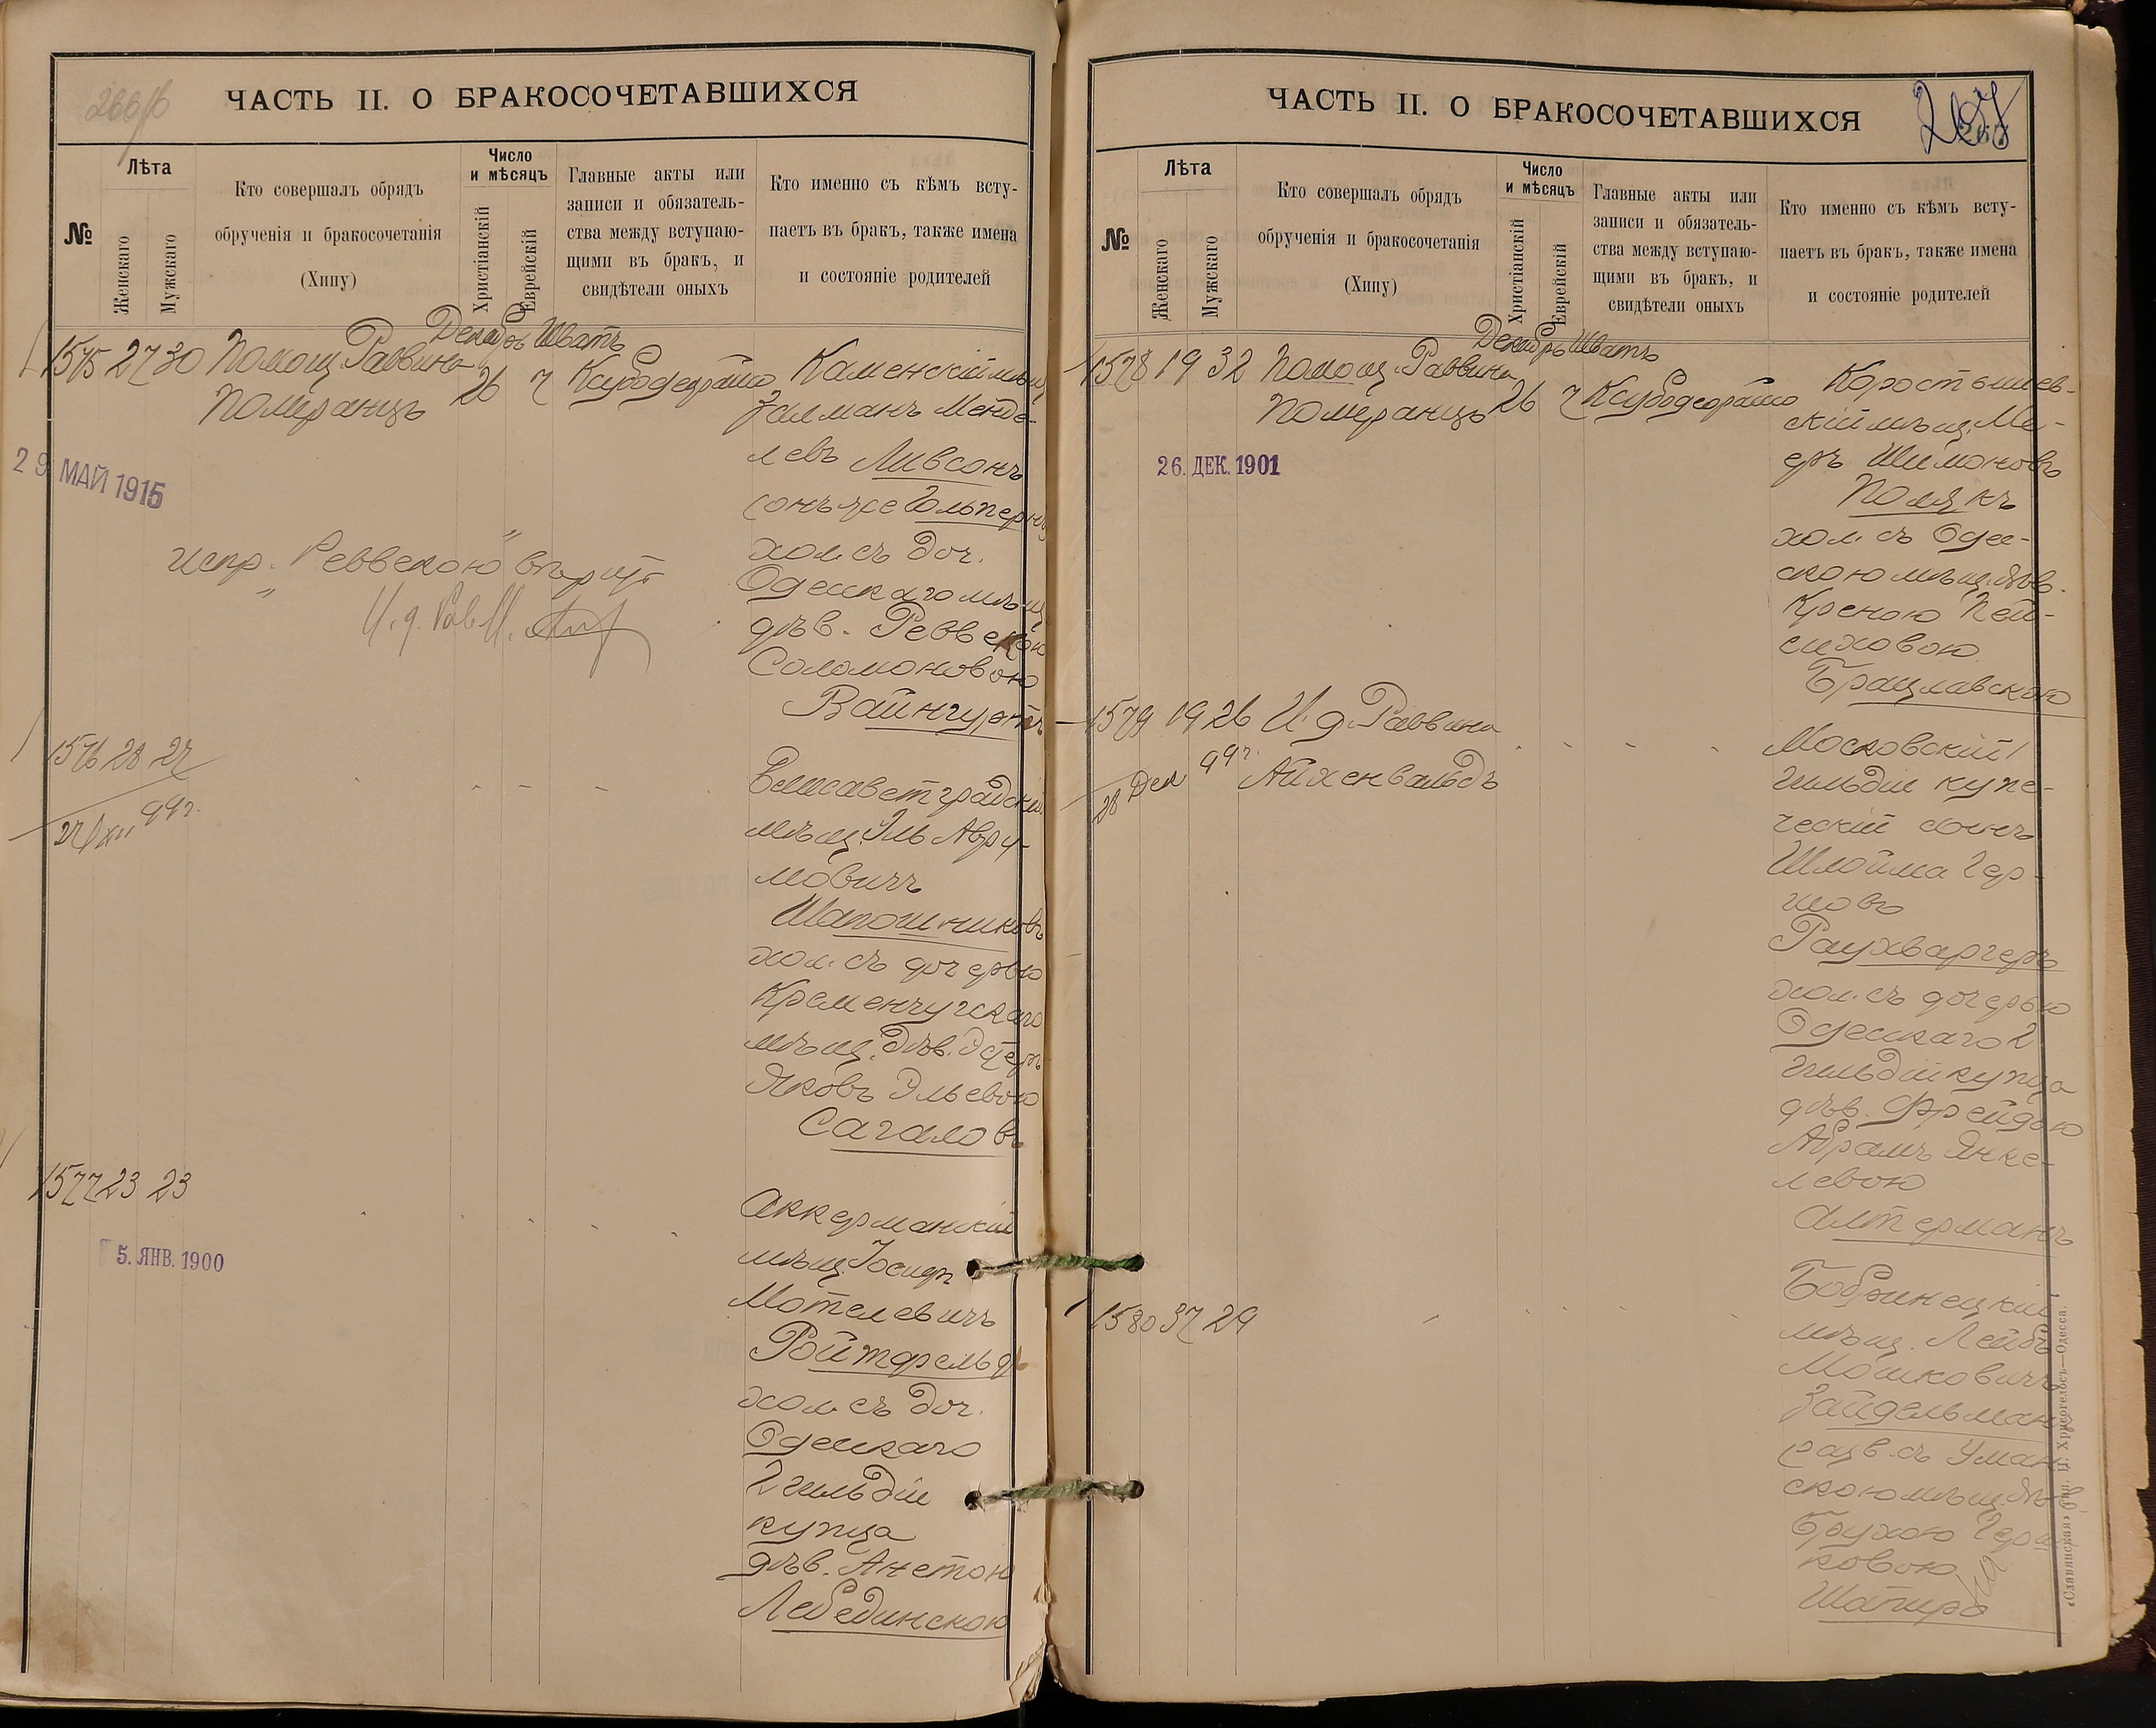 266/б
ЧАСТЬ II. О БРАКОСОЧЕТАВШИХСЯ
№
Лѣта
Женскаго
Мужскаго
Кто совершалъ обрядъ
обрученія и бракосочетанія
(Хипу)
Число
и мѣсяцъ
Христіанскій
Еврейскій
Главные акты или
записи и обязатель-
ства между вступаю-
щими въ бракъ, и
свидѣтели оныхъ
Кто именно съ кѣмъ всту-
паетъ въ бракъ, также имена
и состояніе родителей
Декабрь Шватъ
1575 27 30 Помощ. Раввина 26 7
Померанцъ
Каменскій мѣщ.
Залманъ Менде-
левъ Ливсонъ
онъ же Гальпернъ
хол. съ доч.
Одесскаго мѣщ.
дѣв. Реввекою
Соломоновою
Вайнгуртъ
29 МАЙ 1915
испр. "Реввекою" вѣрить
И. д. Рав.
1576 28 27
27/XII 99 г.
Елисаветградскій
мѣщ. Эль Авру-
мовичъ
Шапошниковъ
хол. съ дочерью
Кременчугскаго
мѣщ. дѣв. Эстеръ
Яковъ Эльевою
Сагаловъ
1577 23 23
5. ЯНВ. 1900
Аккерманскій
мѣщ. Іосифъ
Мотелевичъ
Ройтфельдъ
хол. съ доч.
Одесскаго
2 гильдіи
купца
дѣв. Анетою
Лебединскою
ЧАСТЬ II. О БРАКОСОЧЕТАВШИХСЯ
267
№
Лѣта
Женскаго
Мужскаго
Кто совершалъ обрядъ
обрученія и бракосочетанія
(Хипу)
Число
и мѣсяцъ
Христіанскій
Еврейскій
Главные акты или
записи и обязатель-
ства между вступаю-
щими въ бракъ, и
свидѣтели оныхъ
Кто именно съ кѣмъ всту-
паетъ въ бракъ, также имена
и состояніе родителей
Декабрь Шватъ
1578 19 32 Помощ. Раввина 26 7
Померанцъ
26. ДЕК. 1901
Коростышев-
скій мѣщ. Ме-
еръ Шимоновъ
Полякъ
хол. съ Одес-
скою мѣщ. дѣв.
Креною Пей-
сиховою
Брацлавскою
1579 19 26 И. д. Раввина
Айхенвальдъ
28 Дек 99 г.
Московскій 1
гильдіи купе-
ческій сынъ
Шлойма Гер-
шовъ
Раухваргеръ
хол. съ дочерью
Одесскаго 2
гильдіи купца
дѣв. Фрейдою
Абрамъ Янке-
левою
Алтерманъ
1580 37 29
Бобринецкій
мѣщ. Лейбъ
Мошковичъ
Зайдельманъ
разв. съ Уман-
скою мѣщ.
Брухою Герш-
ковою
Шапиро
«Славянская» тип. Н. Хрисогелосъ—Одесса.